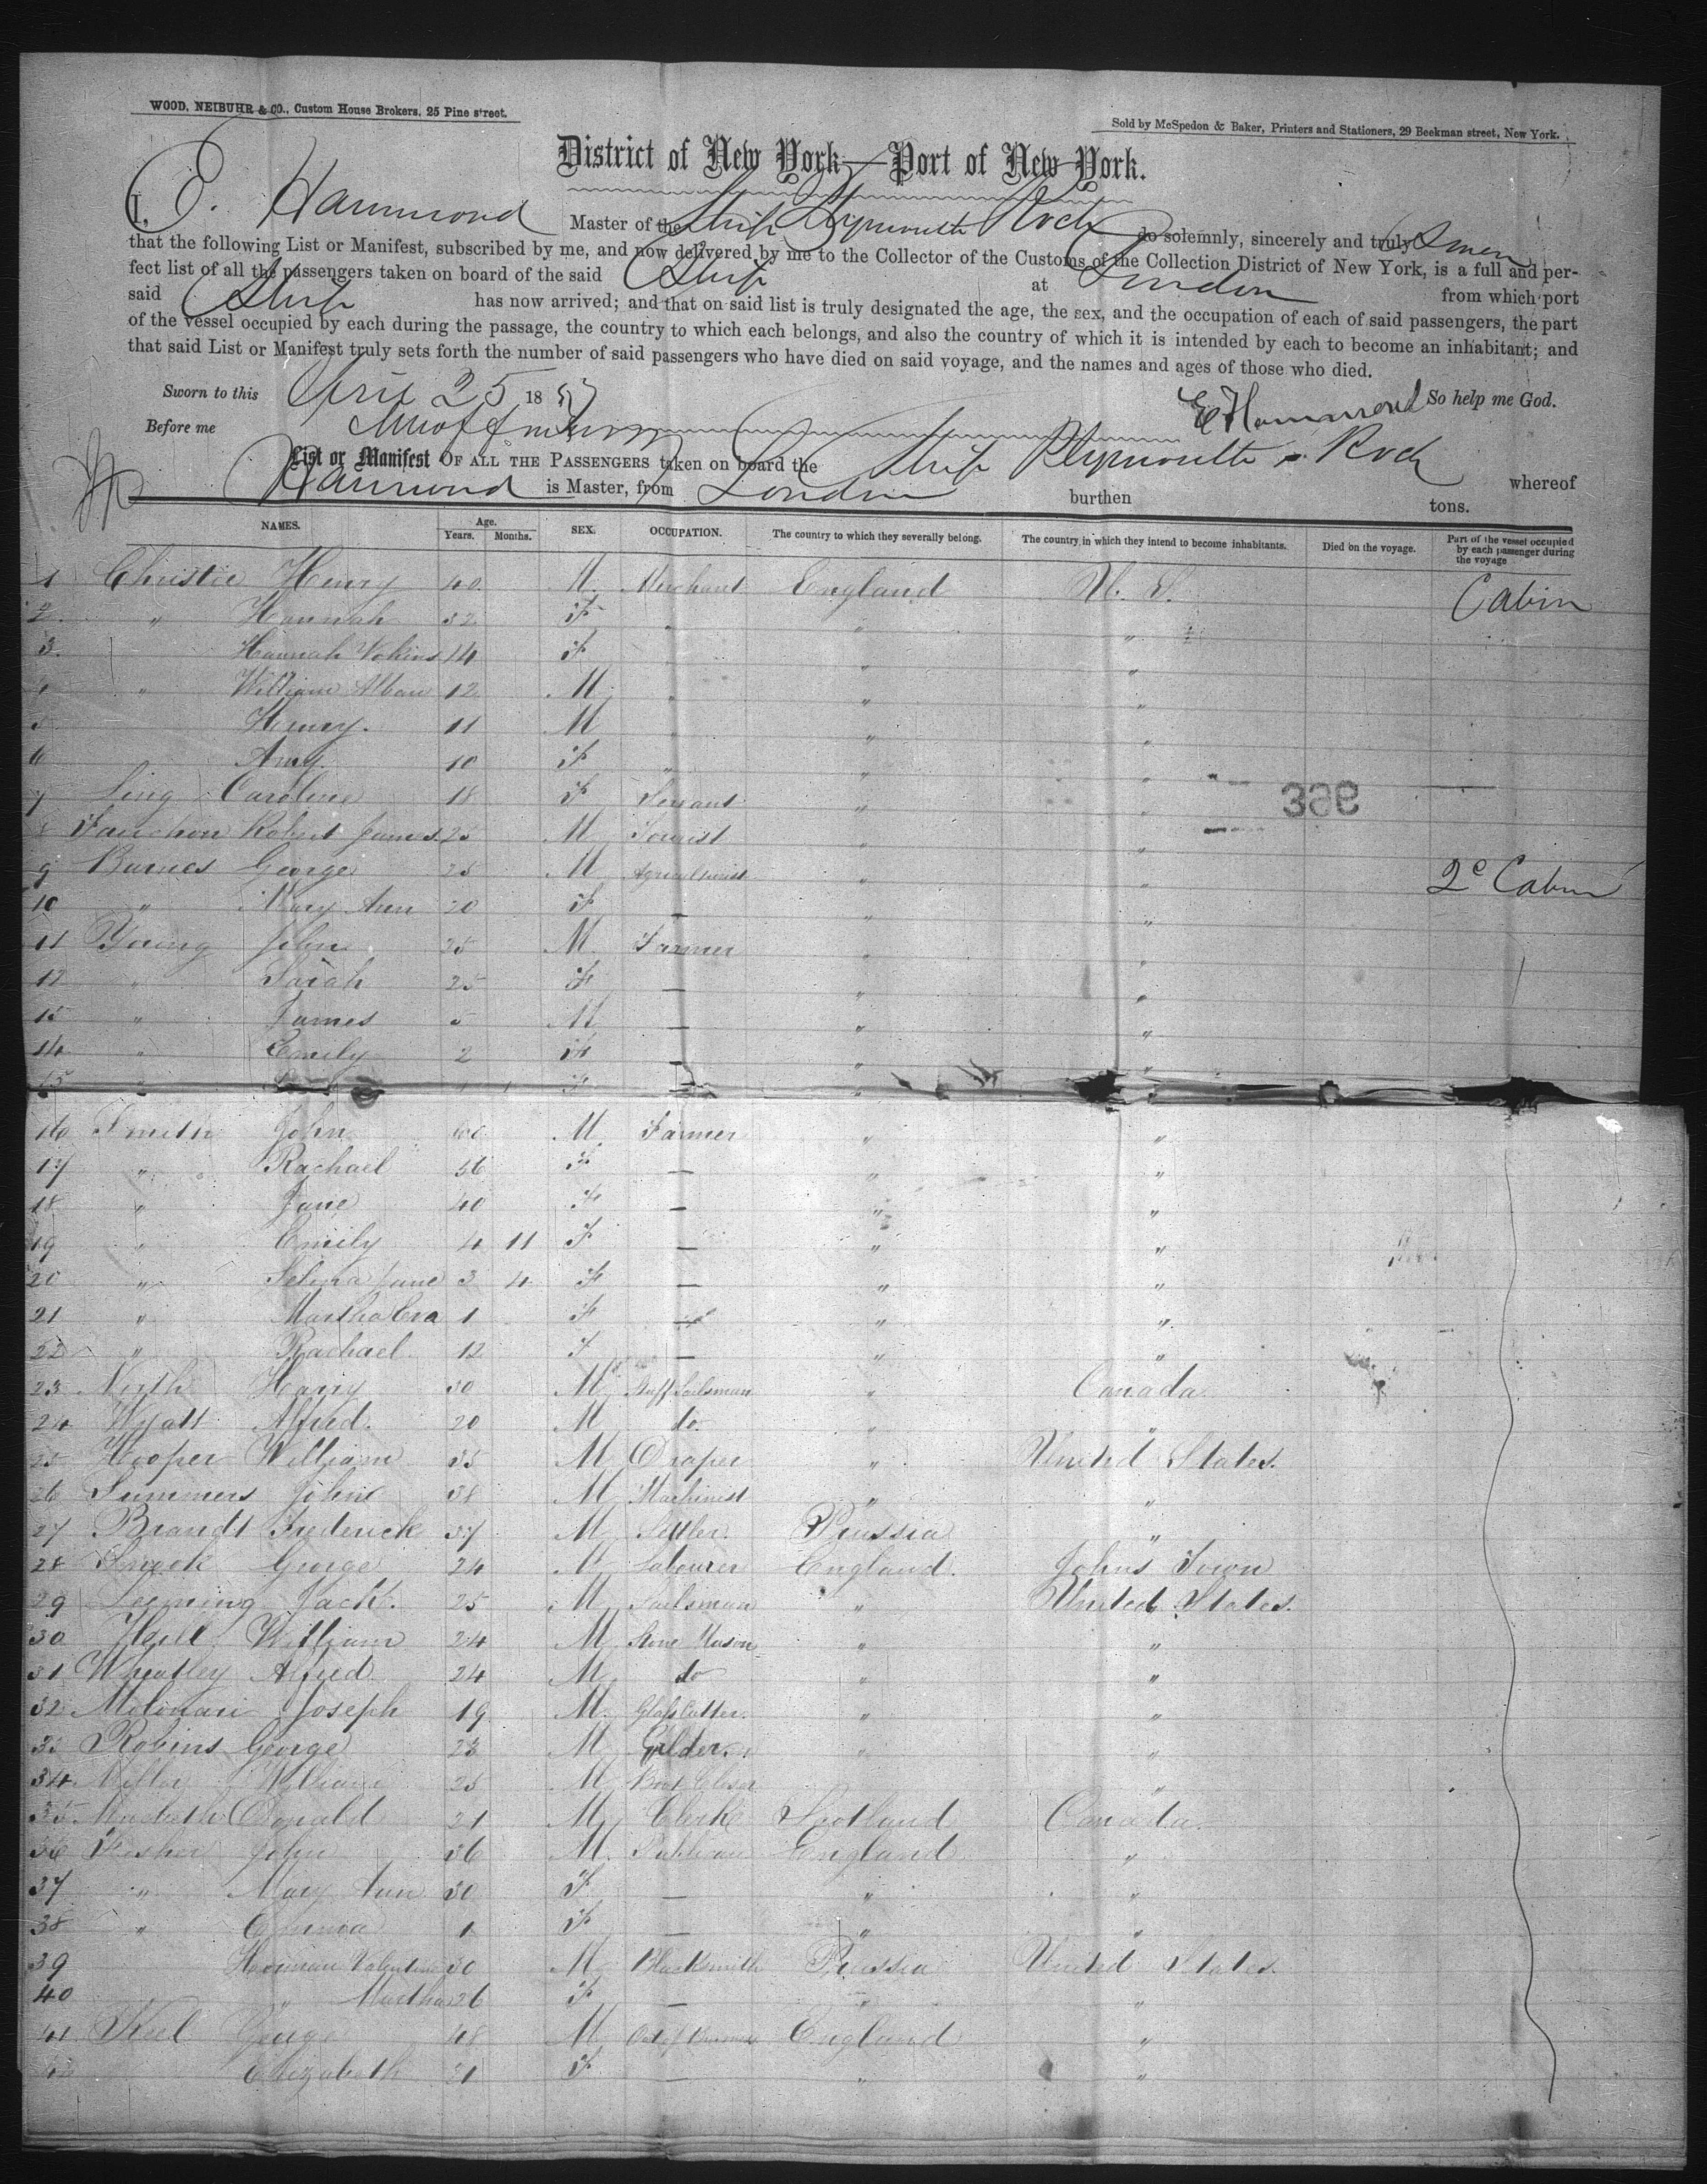 WOOD, NEIBUHR & CO., Custom House Brokers, 25 Pine street.
Sold by McSpedon & Baker, Printers and Stationers, 29 Beekman street, New York.
District of New York—Port of New York.
I, E. Hammond Master of the Ship Plymouth Rock do solemnly, sincerely and truly Swear
that the following List or Manifest, subscribed by me, and now delivered by me to the Collector of the Customs of the Collection District of New York, is a full and per-
fect list of all the passengers taken on board of the said Ship at London from which port
said Ship has now arrived; and that on said list is truly designated the age, the sex, and the occupation of each of said passengers, the part
of the vessel occupied by each during the passage, the country to which each belongs, and also the country of which it is intended by each to become an inhabitant; and
that said List or Manifest truly sets forth the number of said passengers who have died on said voyage, and the names and ages of those who died.
Sworn to this April 25 1857 E Hammond So help me God.
Before me
List or Manifest OF ALL THE PASSENGERS taken on board the Ship Plymouth Rock whereof
Hammond is Master, from London burthen tons.
NAMES. Age. Years. Months. SEX. OCCUPATION. The country to which they severally belong. The country in which they intend to become inhabitants. Died on the voyage. Part of the vessel occupied by each passenger during the voyage
1 Christie Henry 40 M Merchant England U. S. Cabin
2 " Hannah 32 F " " "
3 Hannah Vokins 14 F " "
4 " William Alban 12 M " " "
5 Henry 11 M " " "
6 Amy 10 F " " "
7 Ling Caroline 18 F Servant " "
396
8 Fauchon Robert James 25 M Tourist " "
9 Barnes George 25 M Agriculturist " " 2e Cabin
10 " Mary Ann 20 F — " "
11 Young John 25 M Farmer " "
12 " Sarah 25 F — " "
13 " James 5 M — " "
14 " Emily 2 F — " "
15 " F — "
16 Smith John 60 M Farmer " "
17 " Rachael 56 F — " "
18 " Jane 40 F — " "
19 " Emily 4 11 F — " "
20 " Selina Jane 3 4 F — " "
21 " Martha Eva 1 F — " "
22 " Rachael 12 F — " "
23 North Harry 30 M Stuff Salsman " Canada
24 Wyatt Alfred 20 M do " "
25 Hooper William 35 M Draper " United States.
26 Summers John 38 M Machinist " "
27 Brandt Frederick 37 M Settler Prussia "
28 Snook George 24 M Labourer England Johns Town
29 Leeming Jack 25 M Salsman " United States.
30 Hall William 24 M Stone Mason " "
31 Wheatley Alfred 24 M do " "
32 Molinari Joseph 19 M Glass Cutter " "
33 Robins George 23 M Gilder " "
34 Miller William 25 M Boot Closer "
35 Macbeth Donald 21 M Clerk Scotland Canada
36 Fisher John 36 M Publican England "
37 " Mary Ann 30 F — " "
38 " Emma 1 F — " "
39 Harman Valentine 30 M Blacksmith Prussia United States
40 " Martha 26 F — " "
41 Keel George 48 M Out of Business England "
42 Elizabeth 21 F — " "